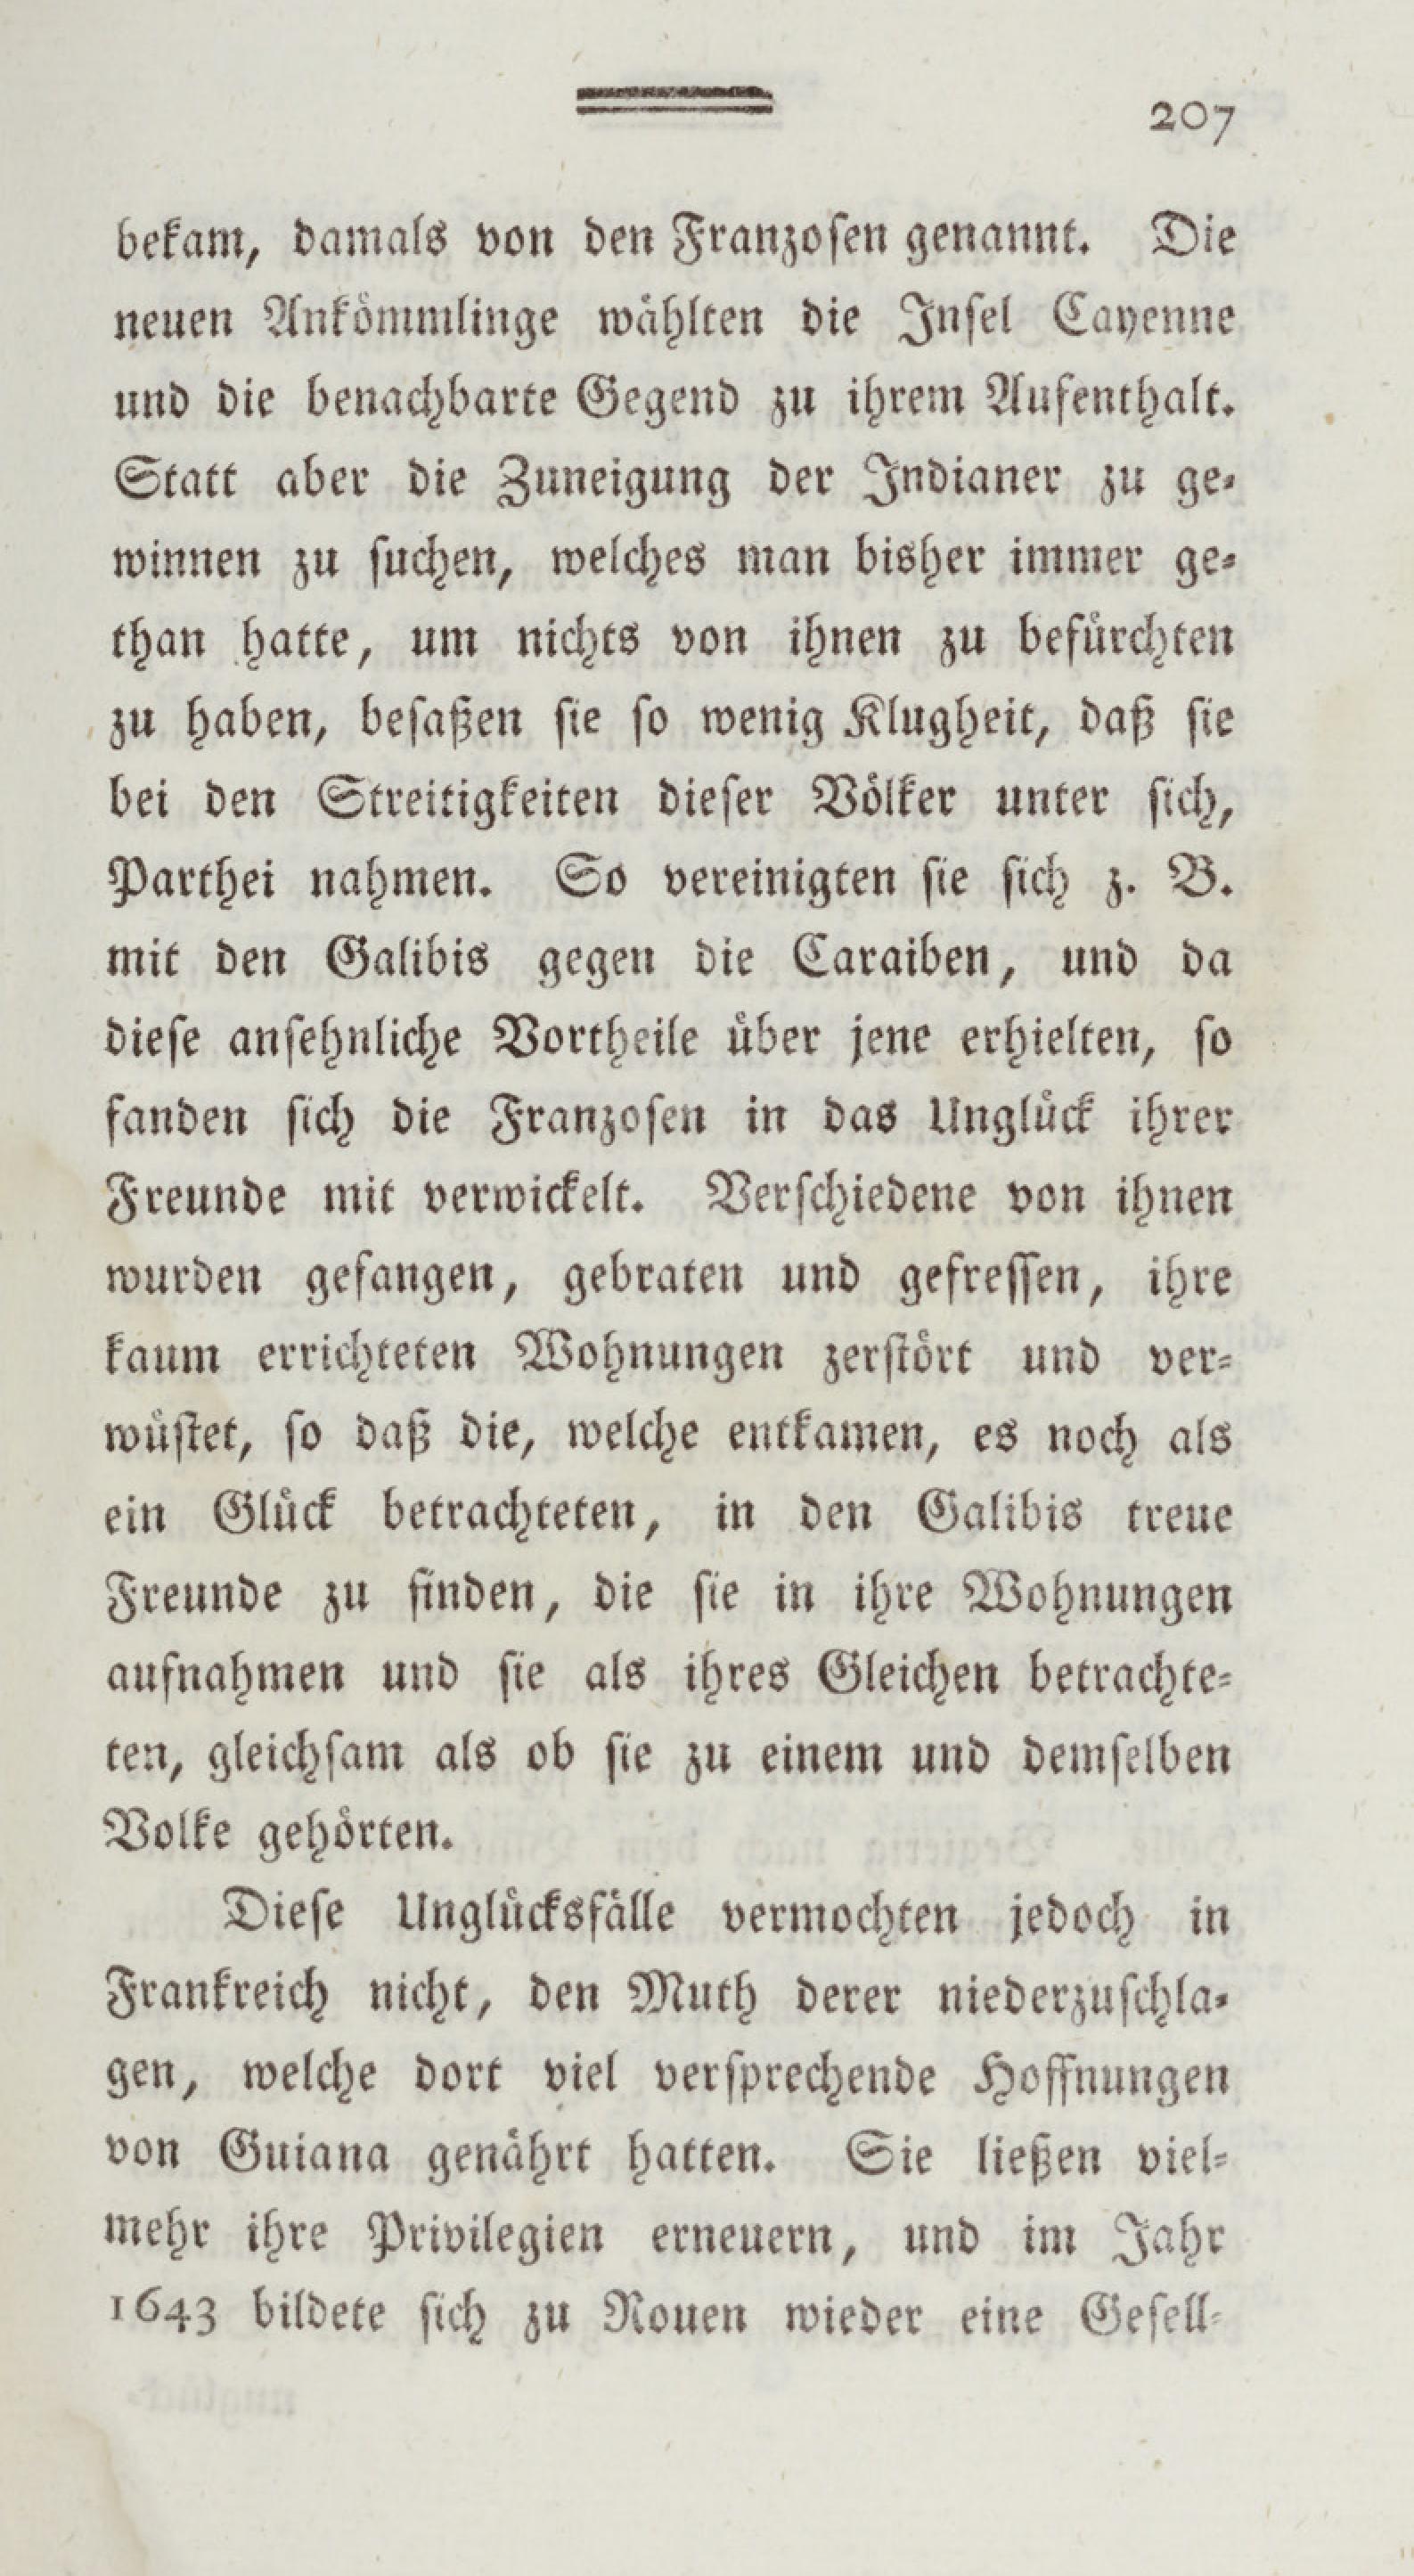 207
bekam, damals von den Franzosen genannt. Die
neuen Ankömmlinge wählten die Insel Cayenne
und die benachbarte Gegend zu ihrem Aufenthalt.
Statt aber die Zuneigung der Indianer zu ge-
winnen zu suchen, welches man bisher immer ge-
than hatte, um nichts von ihnen zu befürchten
zu haben, besaßen sie so wenig Klugheit, daß sie
bei den Streitigkeiten dieser Völker unter sich,
Parthei nahmen. So vereinigten sie sich z. B.
mit den Galibis gegen die Caraiben, und da
diese ansehnliche Vortheile über jene erhielten, so
fanden sich die Franzosen in das Unglück ihrer
Freunde mit verwickelt. Verschiedene von ihnen
wurden gefangen, gebraten und gefressen, ihre
kaum errichteten Wohnungen zerstört und ver-
wüstet, so daß die, welche entkamen, es noch als
ein Glück betrachteten, in den Galibis treue
Freunde zu finden, die sie in ihre Wohnungen
aufnahmen und sie als ihres Gleichen betrachte-
ten, gleichsam als ob sie zu einem und demselben
Volke gehörten.
Diese Unglücksfälle vermochten jedoch in
Frankreich nicht, den Muth derer niederzuschla-
gen, welche dort viel versprechende Hoffnungen
von Guiana genährt hatten. Sie ließen viel-
mehr ihre Privilegien erneuern, und im Jahr
1643 bildete sich zu Rouen wieder eine Gesell-